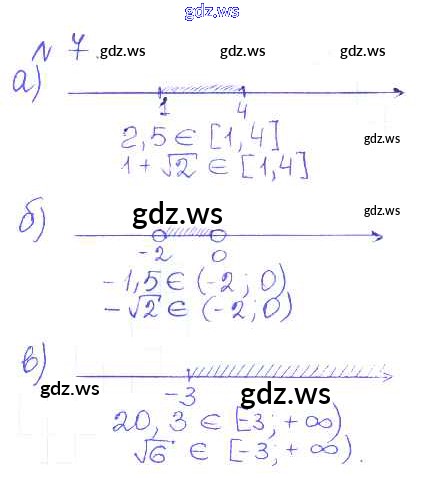 gdz.ws
N 7 gdz.ws gdz.ws gdz.ws
а)
1 4
2,5 ∈ [1,4]
1+√2 ∈ [1,4]
gdz.ws gdz.ws
б)
-2 0
-1,5 ∈ (-2; 0)
-√2 ∈ (-2; 0)
в)
gdz.ws -3 gdz.ws
20, 3 ∈ [-3; +∞)
√6 ∈ [-3; +∞).
gdz.ws